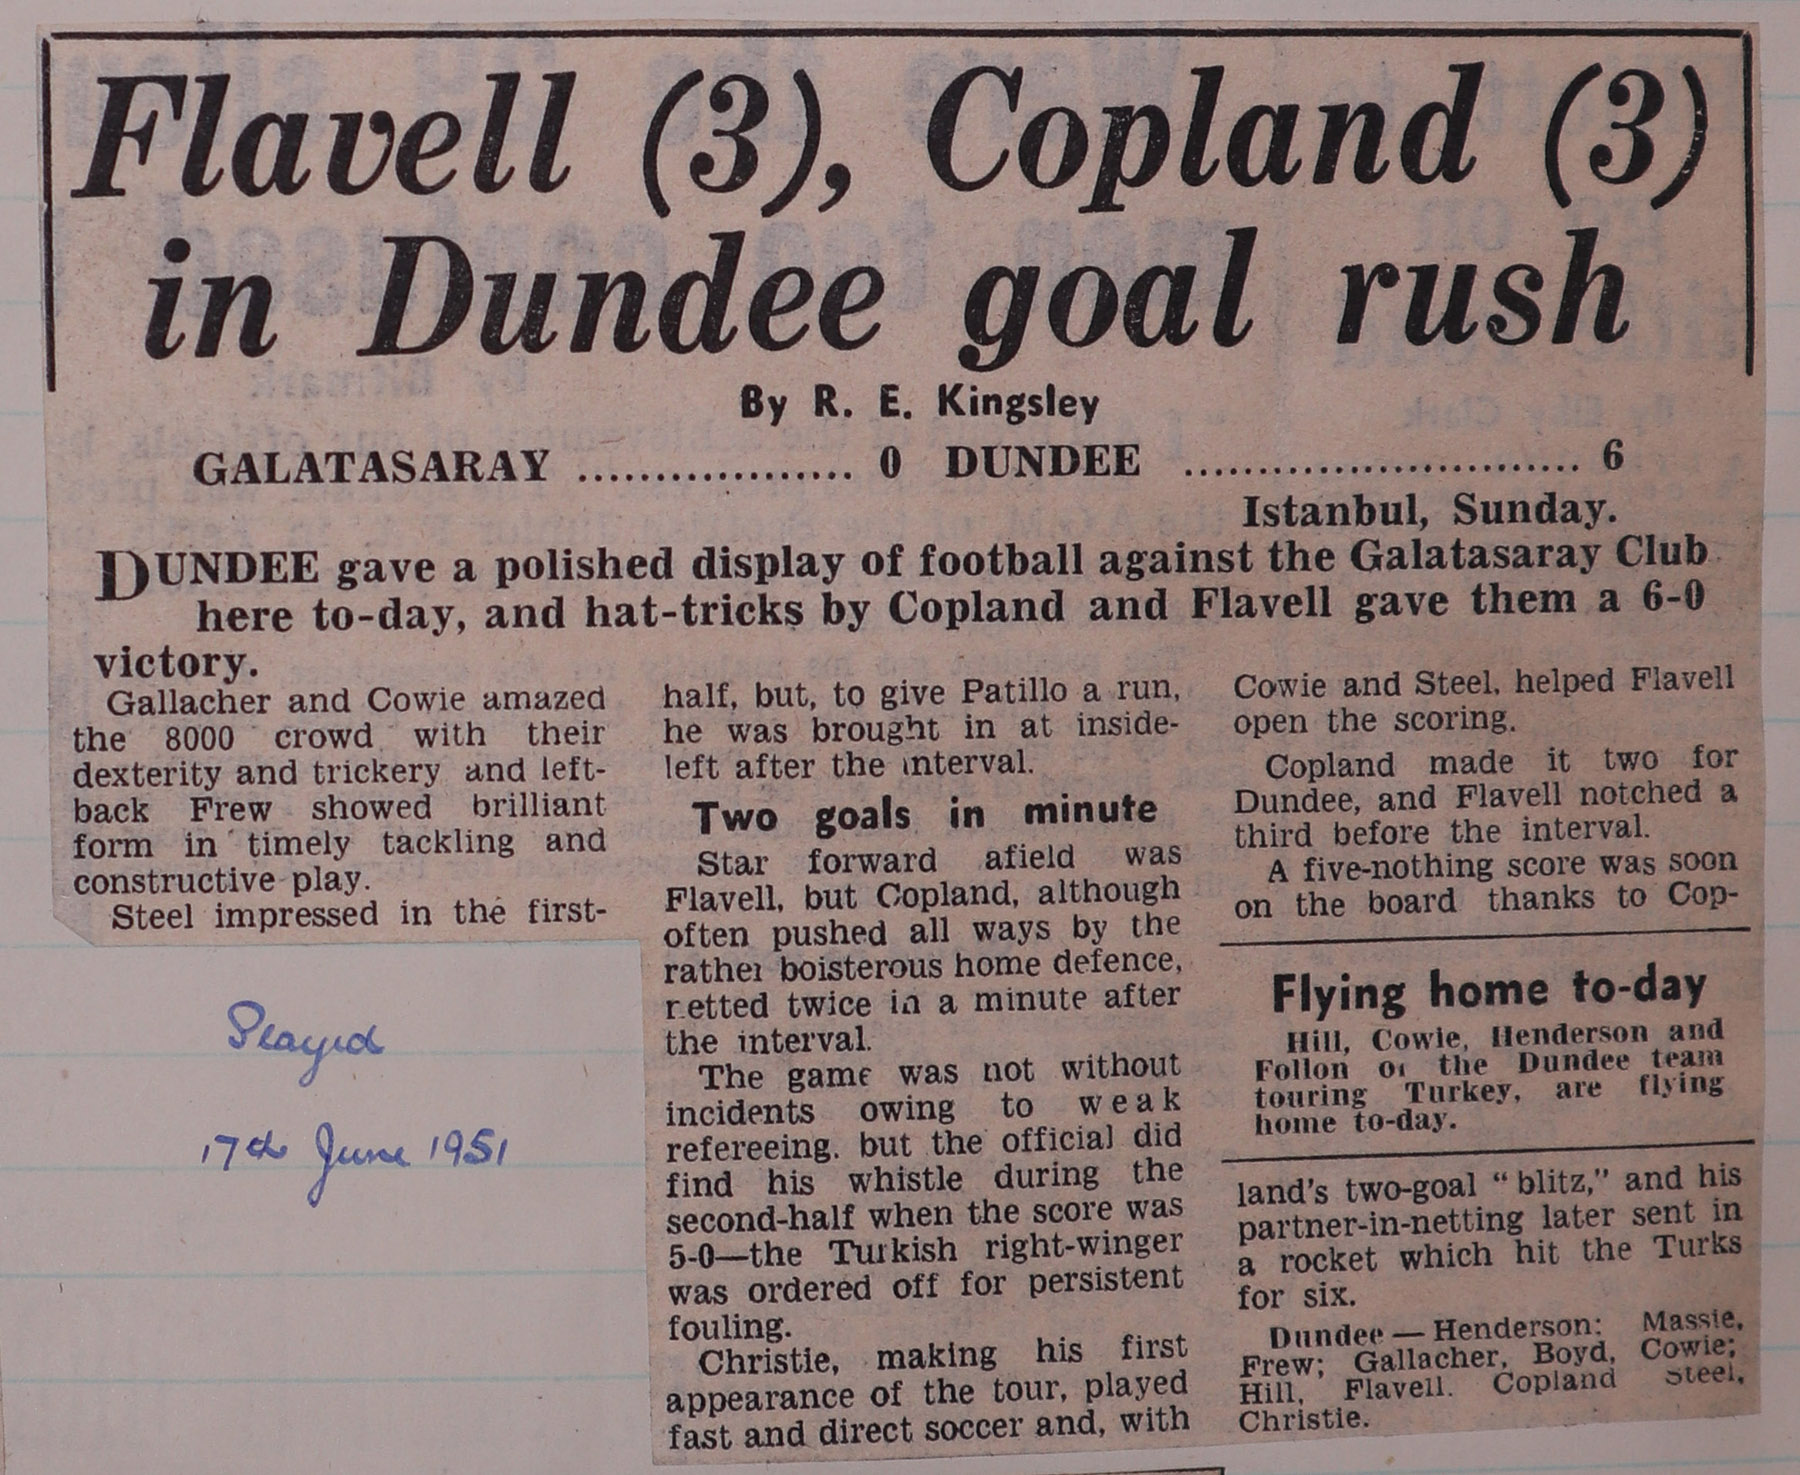 Flavell (3), Copland (3)
in Dundee goal rush
By R. E. Kingsley
GALATASARAY .................. 0 DUNDEE .......................... 6
Istanbul, Sunday.
DUNDEE gave a polished display of football against the Galatasaray Club
here to-day, and hat-tricks by Copland and Flavell gave them a 6-0
victory.
Gallacher and Cowie amazed
the 8000 crowd with their
dexterity and trickery and left-
back Frew showed brilliant
form in timely tackling and
constructive play.
Steel impressed in the first-
half, but, to give Patillo a run,
he was brought in at inside-
left after the interval.
Two goals in minute
Star forward afield was
Flavell, but Copland, although
often pushed all ways by the
rather boisterous home defence,
netted twice in a minute after
the interval.
The game was not without
incidents owing to weak
refereeing. but the official did
find his whistle during the
second-half when the score was
5-0—the Turkish right-winger
was ordered off for persistent
fouling.
Christie, making his first
appearance of the tour, played
fast and direct soccer and, with
Cowie and Steel, helped Flavell
open the scoring.
Copland made it two for
Dundee, and Flavell notched a
third before the interval.
A five-nothing score was soon
on the board thanks to Cop-
Flying home to-day
Hill, Cowie, Henderson and
Follon of the Dundee team
touring Turkey, are flying
home to-day.
land's two-goal "blitz," and his
partner-in-netting later sent in
a rocket which hit the Turks
for six.
Dundee — Henderson; Massie,
Frew; Gallacher, Boyd, Cowie;
Hill, Flavell. Copland Steel,
Christie.
Played
17th June 1951